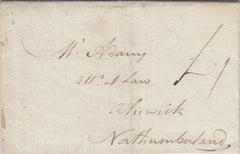 Mr Adams
Att. at Law
Alnwick
Northumberland